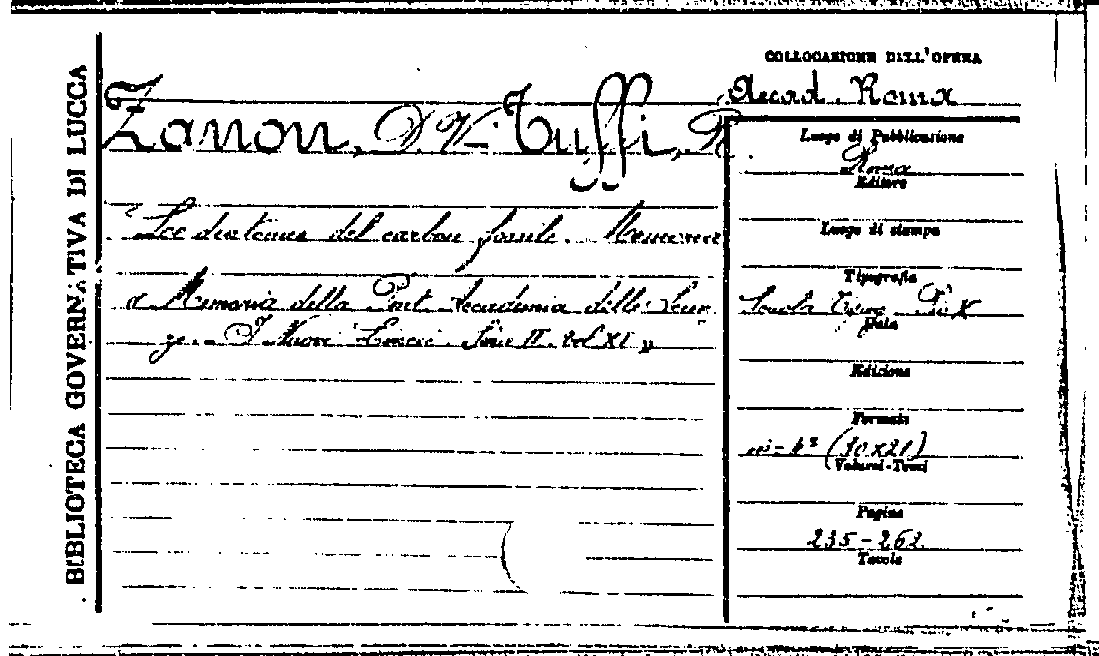 BIBLIOTECA GOVERNATIVA DI LUCCA
Zanon, D. V. - Tuffi, R.
del carbon fossile. Memoria
" Memoria della Pont. Accademia delle Scien
ze. I Nuovi Lincei. Serie II. Vol XI "
COLLOCAZIONE DELL'OPERA
Accad. Roma
Luogo di Pubblicazione
Roma
Editore
Luogo di stampa
Tipografia
Scuola Tipogr. Pio X
Data
Edizione
Formato
in-4° (30x21)
Volumi-Tomi
Pagine
235-262
Tavole